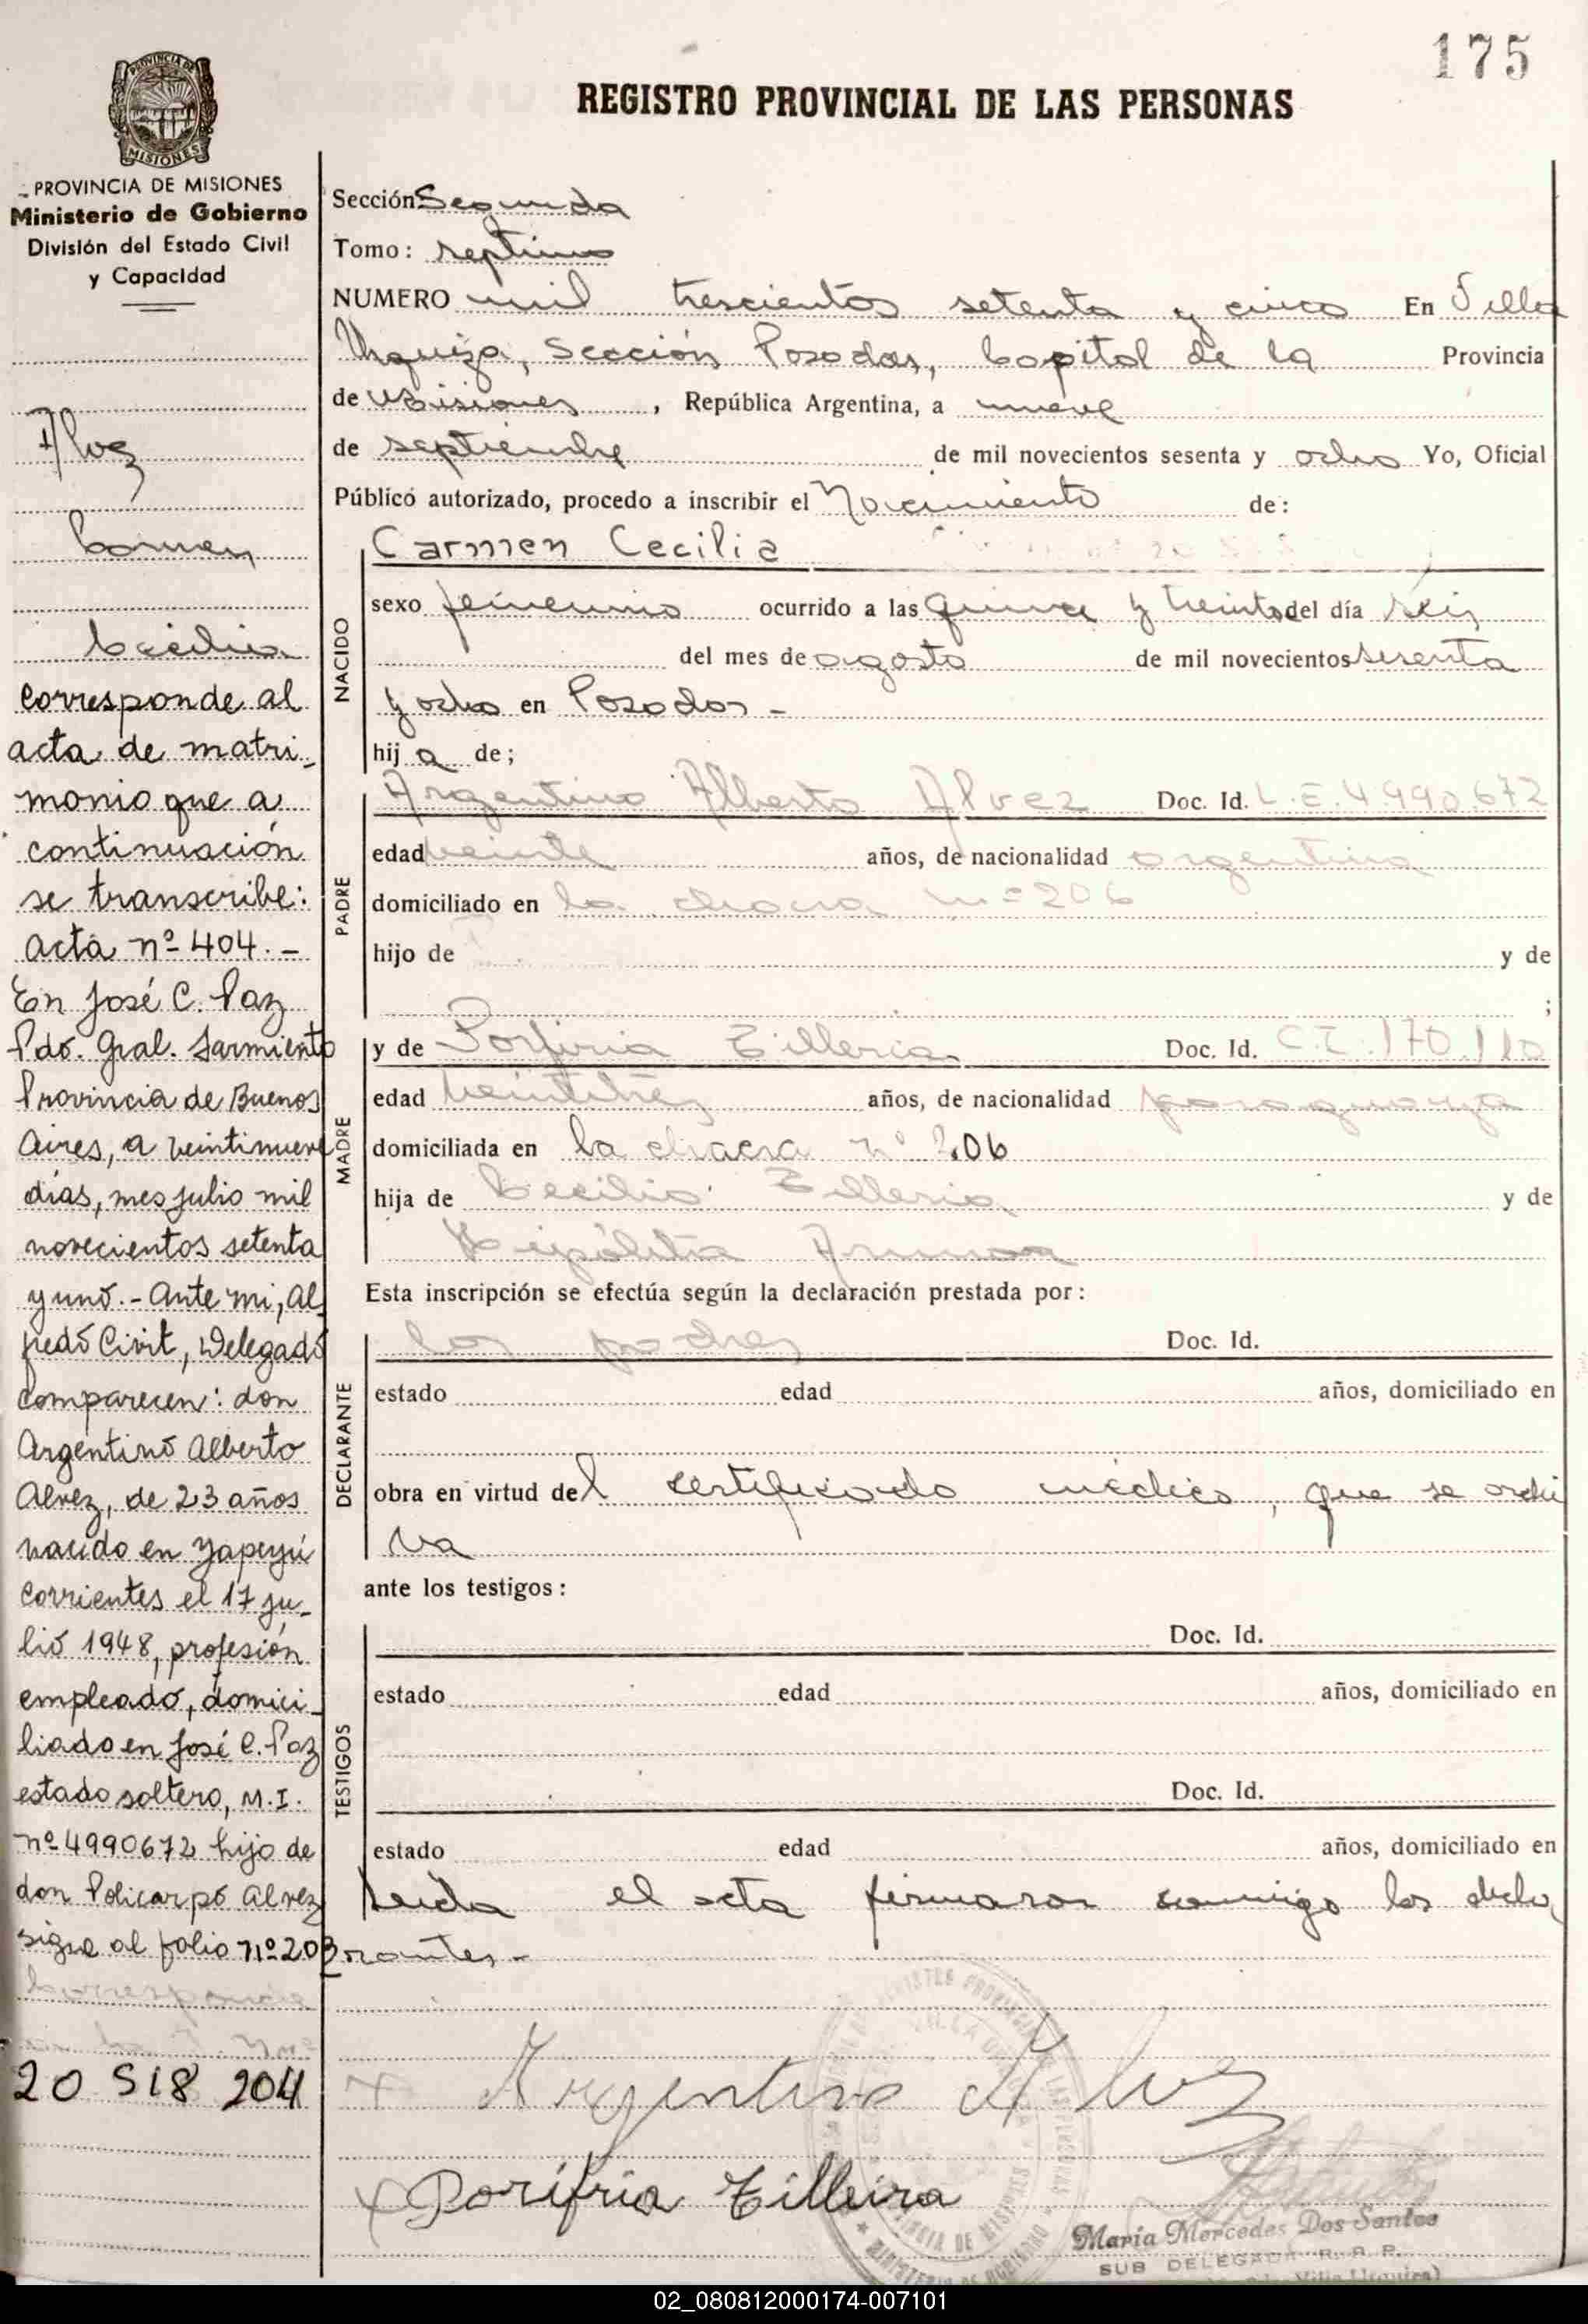 175
PROVINCIA DE
MISIONES
REGISTRO PROVINCIAL DE LAS PERSONAS
PROVINCIA DE MISIONES
Ministerio de Gobierno
División del Estado Civil
y Capacidad
Alvez
Carmen
Cecilia
corresponde al
acta de matri-
monio que a
continuación
se transcribe:
acta nº 404.-
En José C. Paz
Pdo. Gral. Sarmiento
Provincia de Buenos
Aires, a veintinueve
días, mes julio mil
novecientos setenta
y uno.- Ante mi, Al
fredo Civit, Delegado
comparecen: don
Argentino Alberto
Alvez, de 23 años
nacido en Yapeyú
Corrientes el 17 ju-
lio 1948, profesión
empleado, domici-
liado en José C. Paz
estado soltero, M.I.
nº 4990672 hijo de
don Policarpo Alvez
sigue al folio nº 203
Corresponde
20 518 204
Sección Segunda
Tomo: septimo
NUMERO mil trescientos setenta y cinco En Villa
Urquiza, Sección Posadas, Capital de la Provincia
de Misiones, República Argentina, a nueve
de septiembre de mil novecientos sesenta y ocho Yo, Oficial
Público autorizado, procedo a inscribir el Nacimiento de:
NACIDO
Carmen Cecilia
sexo femenino ocurrido a las quince y treinta del día seis
del mes de agosto de mil novecientos sesenta
y ocho en Posadas -
hija de;
PADRE
Argentino Alberto Alvez Doc. Id. L.E. 4.990.672
edad veinte años, de nacionalidad argentina
domiciliado en la chacra nº 206
hijo de y de
;
MADRE
y de Porfiria Tilleria Doc. Id. C.I. 170.110
edad veintitrés años, de nacionalidad paraguaya
domiciliada en la chacra nº 206
hija de Cecilio Tilleria y de
Hipólita
Esta inscripción se efectúa según la declaración prestada por:
DECLARANTE
los padres Doc. Id.
estado edad años, domiciliado en
obra en virtud del certificado médico, que se archi
va
ante los testigos:
TESTIGOS
Doc. Id.
estado edad años, domiciliado en
Doc. Id.
estado edad años, domiciliado en
Leida el acta firmaron conmigo los decla
rantes.-
Argentino Alvez
Porifria Tilleira
María Mercedes Dos Santos
SUB DELEGADA R. P. P.
Villa Urquiza)
02_080812000174-007101